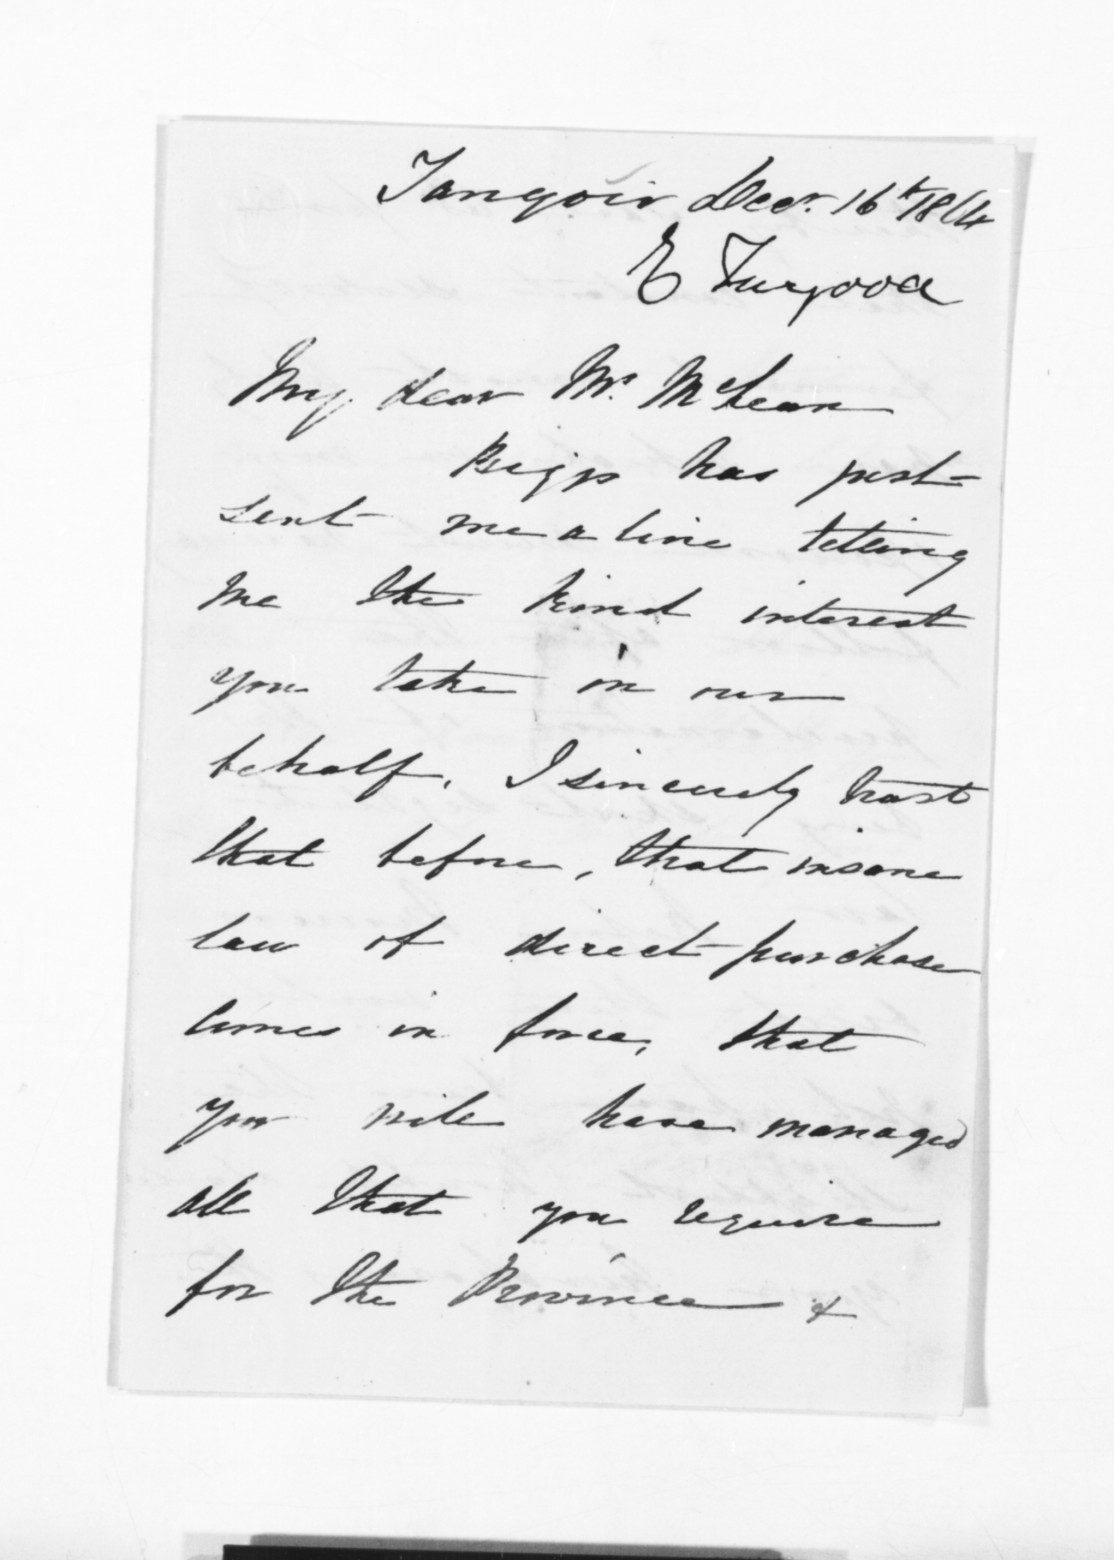 Tangoio Decr. 16th 1864
E Turgood
My dear Mr. McLean
Biggs has just
sent me a line telling
me the kind interest
you take in our
behalf. I sincerely trust
that before, that insane
law of direct purchase
comes in force, that
you will have managed
all that you require
for the Province &